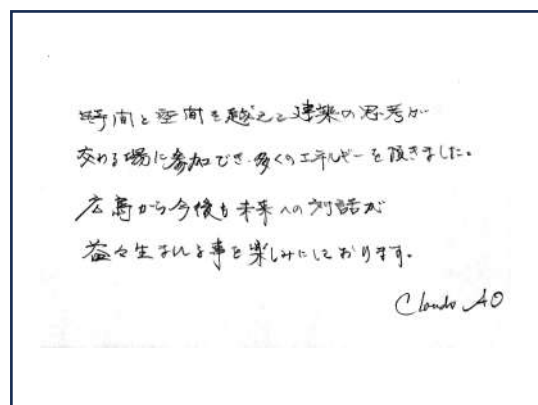 時間と空間を越えて建築の思考が
交わる場に参加でき、多くのエネルギーを頂きました。
広島から今後も未来への対話が
益々生まれる事を楽しみにしております。
AO